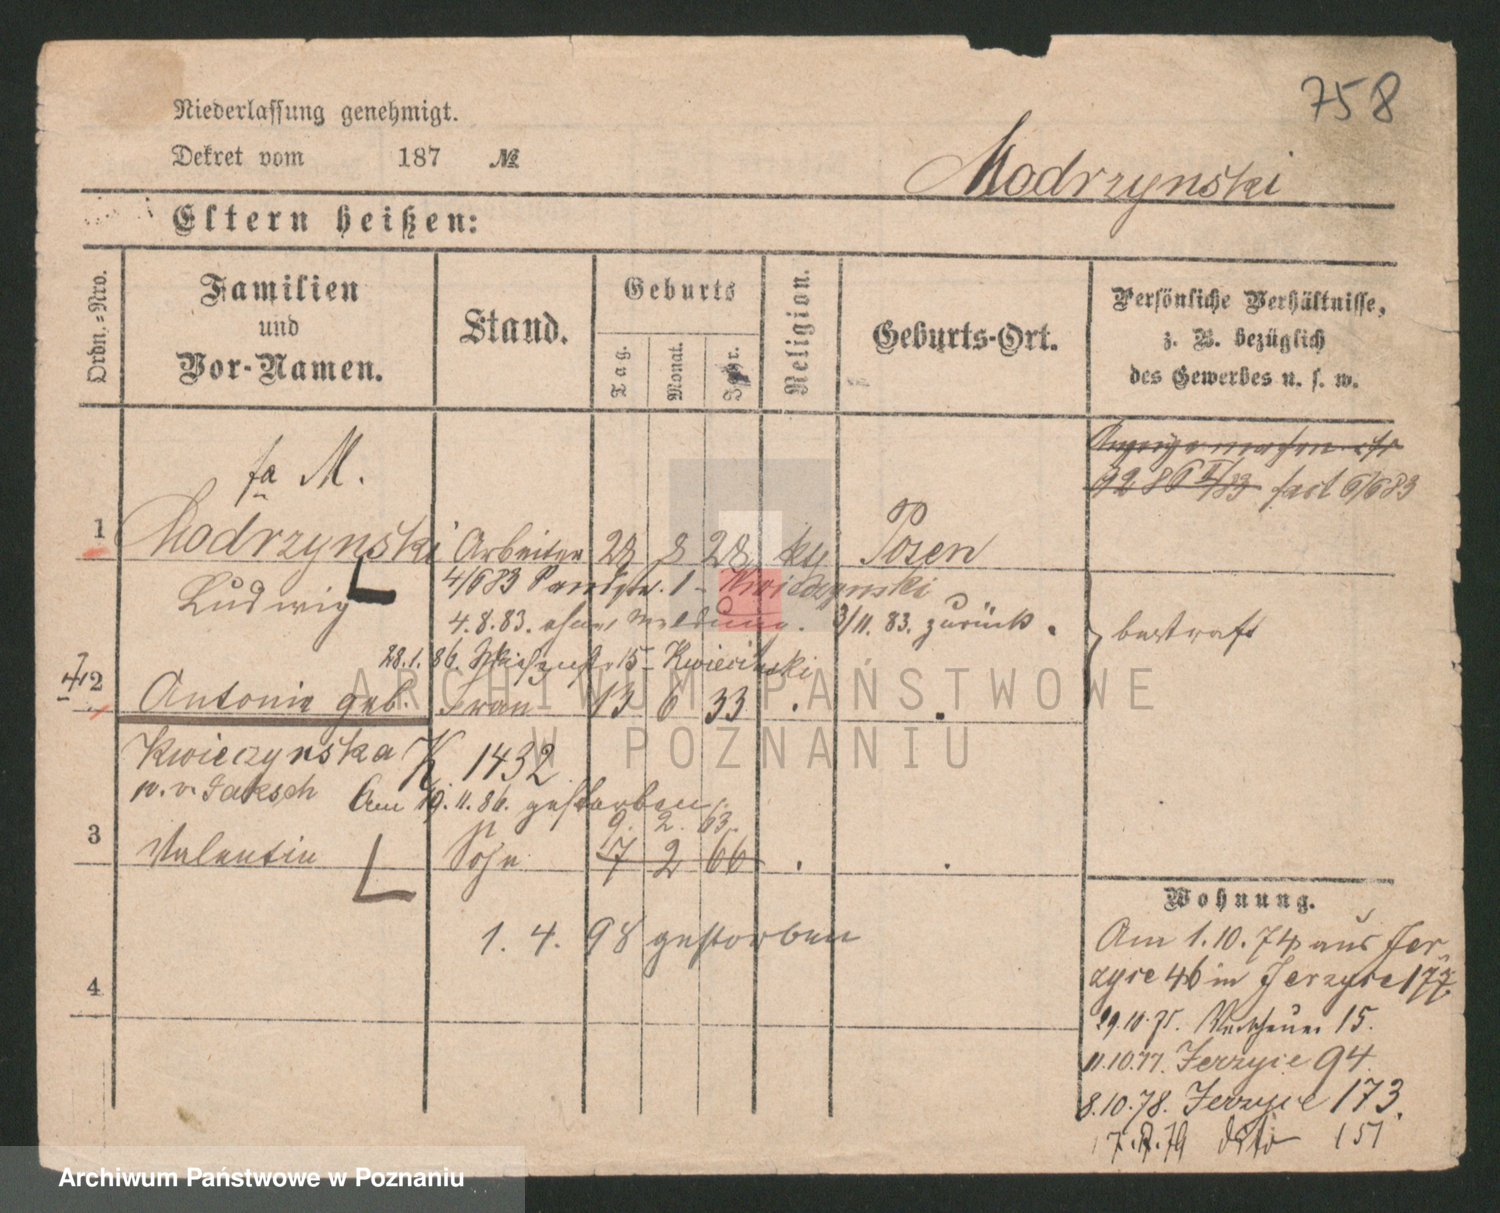 758
Niederlassung genehmigt.
Dekret vom 187 №
Modrzynski
Eltern heißen:
Ordn.-Nro.
Familien und Vor-Namen.
Stand.
Geburts
Tag.
Monat.
Jahr.
Religion.
Geburts-Ort.
Persönliche Verhältnisse, z. B. bezüglich des Gewerbes u. s. w.
fa M.
1 Modrzynski Arbeiter 28 8 28 kth Posen
Ludwig
4/6 83
4.8.83. ohne Meldung. 3/11. 83. zurück.
bestraft
28.1.86. 15 Kwiecinski
2 Antonie geb. Frau 13 6 33
Kwieczynska K 1432
Am 19.11.86. gestorben
9. 2. 63.
3 Valentin Sohn 17 2 66
1. 4. 98 gestorben
4
Wohnung.
Am 1.10.74 aus Jer
zyce 46 in Jerzyce 177
29.10.75. 15.
11.10.77. Jerzyce 94
8.10.78. Jerzyce 173.
79 dito 151
ARCHIWUM PAŃSTWOWE
W POZNANIU
Archiwum Państwowe w Poznaniu